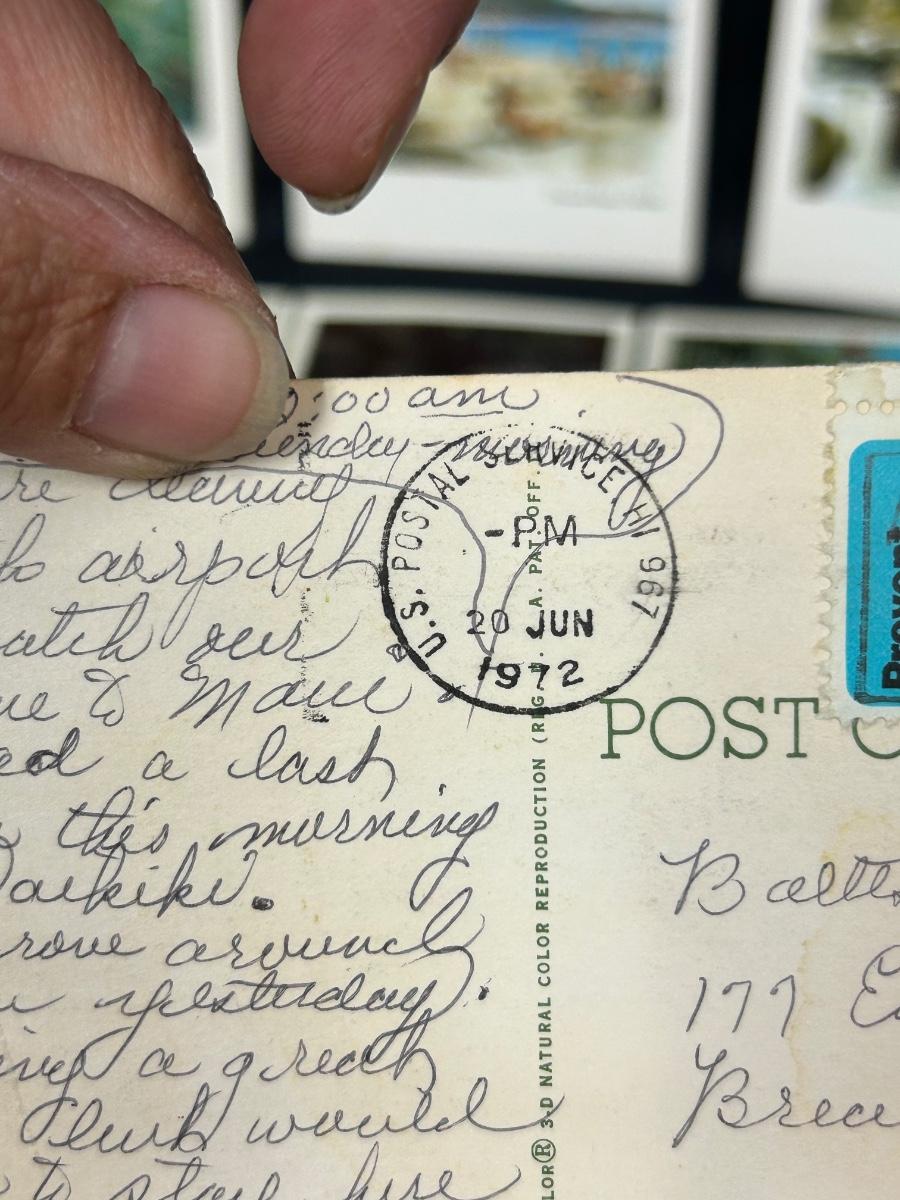 :00 am
morning
are leaving
to airport
catch our
to Maui
had a last
this morning
Waikiki.
drove around
yesterday.
ing a great
but would
to stay here
U.S. POSTAL SERVICE HI 967
-PM
20 JUN
1972
POST C
LOR® 3-D NATURAL COLOR REPRODUCTION (REG. U.S.A. PAT. OFF.
Prevent
177 E